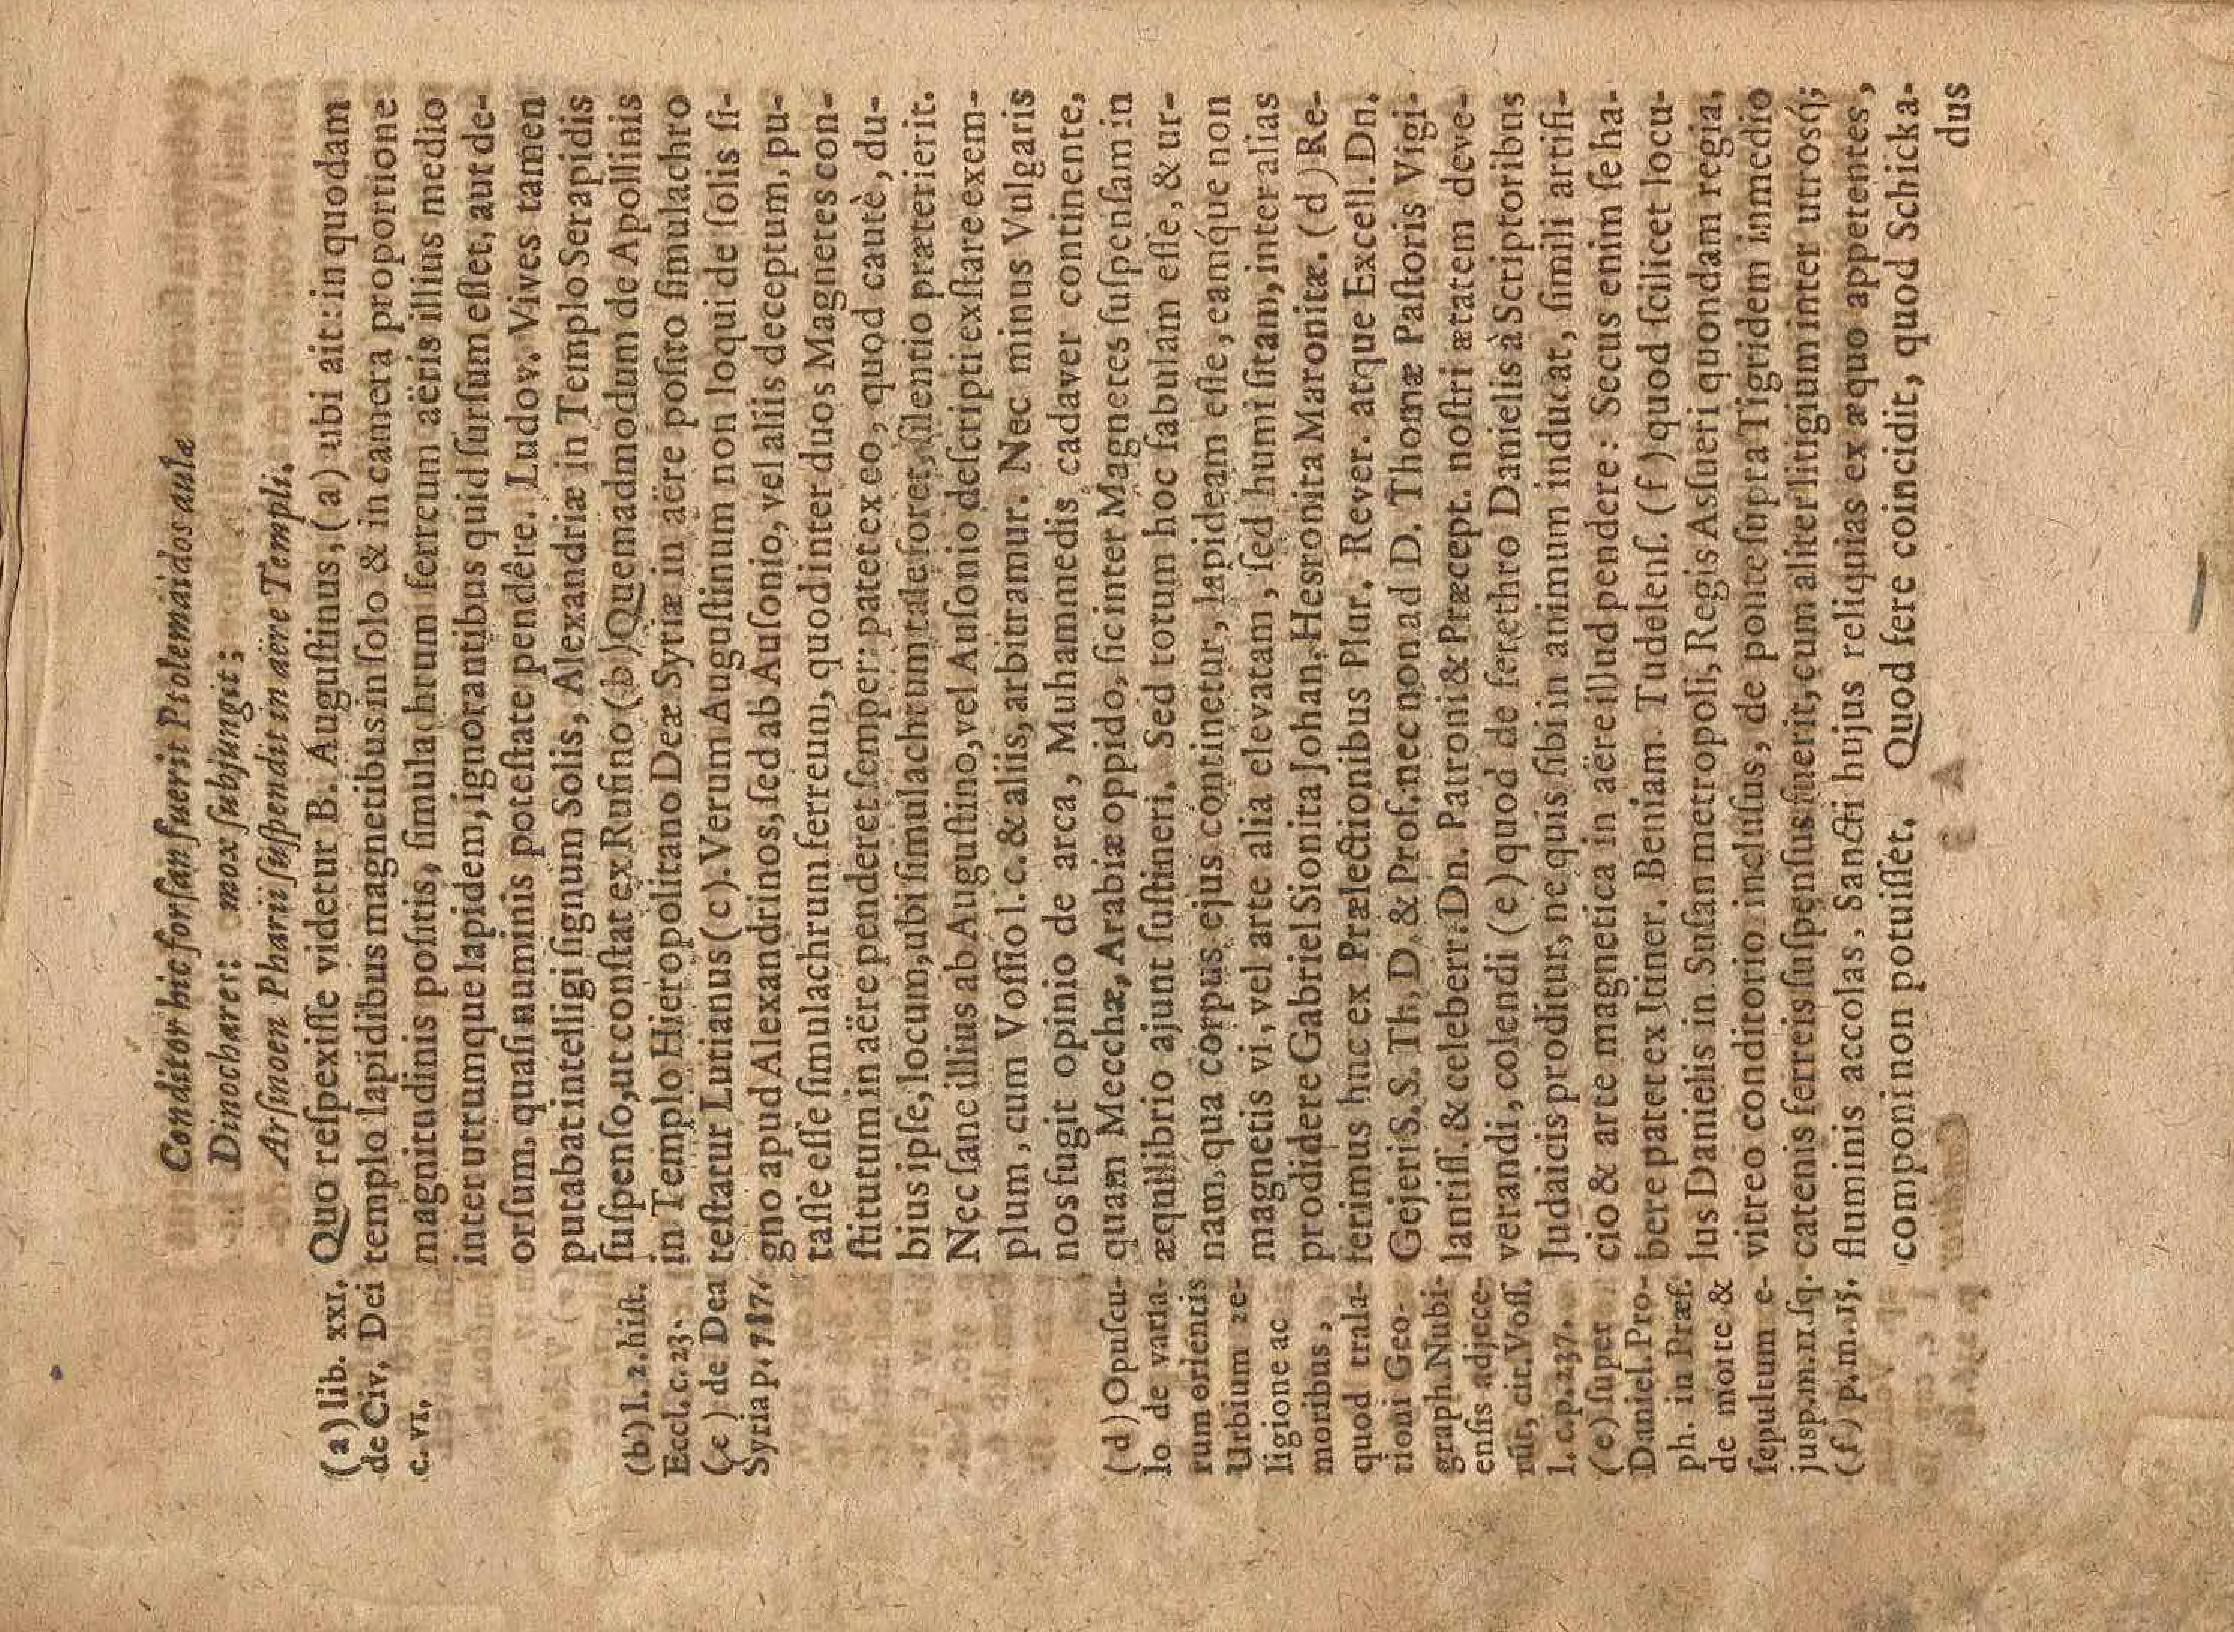 Conditor hic forſan fuerit Ptolemaidos aulæ
Dinochares: mox ſubjungit;
Arſinoen Pharii ſuſpendit in aëre Templi.
Quo reſpexiſſe videtur B. Auguſtinus, (a) ubi ait: in quodam
templo lapidibus magnetibus in ſolo & in camera proportione
magnitudinis poſitis, ſimulachrum ferreum aëris illius medio
inter utrumque lapidem, ignorantibus quid ſurſum eſſet, aut de-
orſum, quaſi numinis poteſtate pendêre. Ludov. Vives tamen
putabat intelligi ſignum Solis, Alexandriæ in Templo Serapidis
ſuſpenſo, ut conſtat ex Rufino (b) Quemadmodum de Apollinis
in Templo Hieropolitano Deæ Syriæ in aëre poſito ſimulachro
teſtatur Lutianus (c). Verum Auguſtinum non loqui de ſolis ſi-
gno apud Alexandrinos, ſed ab Auſonio, vel aliis deceptum, pu-
taſſe eſſe ſimulachrum ferreum, quod inter duos Magnetes con-
ſtitutum in aëre penderet ſemper: patet ex eo, quod cautè, du-
bius ipſe, locum, ubi ſimulachrum tale foret, ſilentio præterierit.
Nec ſane illius ab Auguſtino, vel Auſonio deſcripti exſtare exem-
plum, cum Voſſio l. c. & aliis, arbitramur. Nec minus Vulgaris
nos fugit opinio de arca, Muhammedis cadaver continente,
quam Mecchæ, Arabiæ oppido, ſic inter Magnetes ſuſpenſam in
æquilibrio ajunt ſuſtineri. Sed totum hoc fabulam eſſe, & ur-
nam, qua corpus ejus continetur, lapideam eſſe, eamq́ue non
magnetis vi, vel arte alia elevatam, ſed humi ſitam, inter alias
prodidere Gabriel Sionita Johan. Hesronita Maronitæ. (d) Re-
ferimus huc ex Prælectionibus Plur. Rever. atque Excell. Dn.
Gejeri S.S. Th. D. & Prof. nec non ad D. Thomæ Paſtoris Vigi-
lantiſſ. & celeberr. Dn. Patroni & Præcept. noſtri ætatem deve-
verandi, colendi (e) quod de ferethro Danielis à Scriptoribus
Judaicis proditur, ne quis ſibi in animum inducat, ſimili artifi-
cio & arte magnetica in aëre illud pendere: Secus enim ſe ha-
bere patet ex Itiner. Beniam. Tudelenſ. (f) quod ſcilicet locu-
lus Danielis in Suſan metropoli, Regis Asſueri quondam regia,
vitreo conditorio incluſus, de ponte ſupra Tigridem in medio
catenis ferreis ſuſpenſus fuerit, cum aliter litigium inter utrosq́;
fluminis accolas, Sancti hujus reliquias ex æquo appetentes,
componi non potuiſſet. Quod fere coincidit, quod Schicka-
dus
(a) lib. XXI.
de Civ. Dei
c. VI.
(b) l. 2. hiſt.
Eccl. c. 23.
(c) de Dea
Syria p. 787.
(d) Opuſcu-
lo de varia-
rum orientis
Urbium re-
ligione ac
moribus,
quod trala-
tioni Geo-
graph. Nubi-
enſis adjece-
rūt, cit. Voſſ.
l. c. p. 237.
(e) ſuper
Daniel. Pro-
ph. in Præf.
de morte &
ſepultum e-
jus p. m. 11. ſq.
(f) p. m. 15.